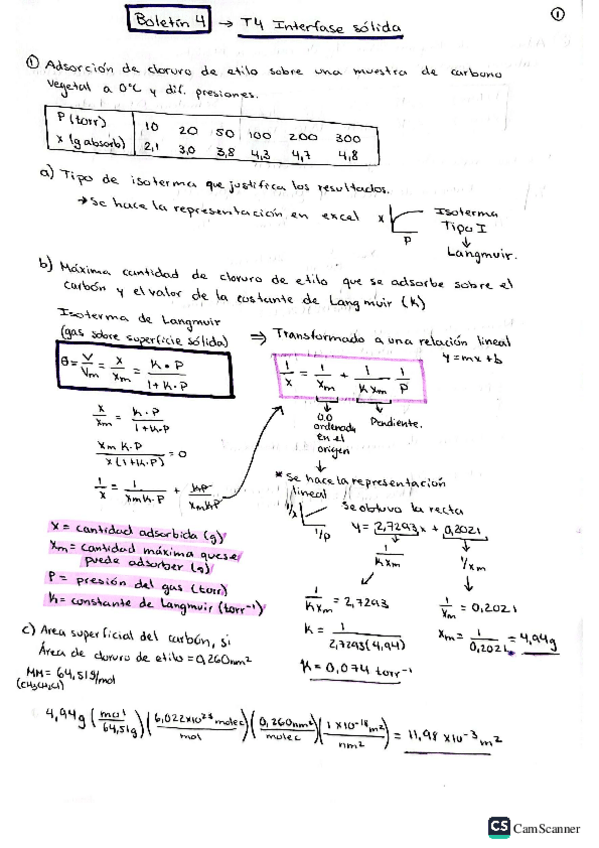 Boletín 4 → T4 Interfase sólida
1
① Adsorción de cloruro de etilo sobre una muestra de carbono
vegetal a 0°C y dif. presiones.
P (torr) 10 20 50 100 200 300
x (g absorb) 2,1 3,0 3,8 4,3 4,7 4,8
a) Tipo de isoterma que justifica los resultados.
→ Se hace la representación en excel
x
P
Isoterma
Tipo I
↓
Langmuir.
b) Máxima cantidad de cloruro de etilo que se adsorbe sobre el
carbón y el valor de la costante de Langmuir (k)
Isoterma de Langmuir
(gas sobre superficie sólida)
⇒ Transformado a una relación lineal
y=mx+b
θ = V/Vm = x/xm = k·P/(1+k·P)
1/x = 1/xm + 1/(k xm) · 1/P
x/xm = k·P/(1+k·P)
xm k·P/(x(1+k·P)) = 0
1/x = 1/(xm k·P) + kP/(xm kP)
0,0
ordenada
en el
origen
Pendiente.
* Se hace la representación
lineal
1/x
1/p
Se obtuvo la recta
y = 2,7293x + 0,2021
1/(k xm)
1/xm
x = cantidad adsorbida (g)
xm = cantidad máxima que se
puede adsorber (g)
P = presión del gas (torr)
k = constante de Langmuir (torr⁻¹)
1/(k xm) = 2,7293
k = 1/(2,7293(4,94))
k = 0,074 torr⁻¹
1/xm = 0,2021
xm = 1/0,2021 = 4,94g
c) Area superficial del carbón, si
Área de cloruro de etilo = 0,260nm²
MM = 64,51g/mol
(CH3CH2Cl)
4,94g (mol/64,51g) (6,022x10²³ molec/mol) (0,260nm²/molec) (1x10⁻¹⁸m²/nm²) = 11,98 x10⁻³ m²
CS CamScanner